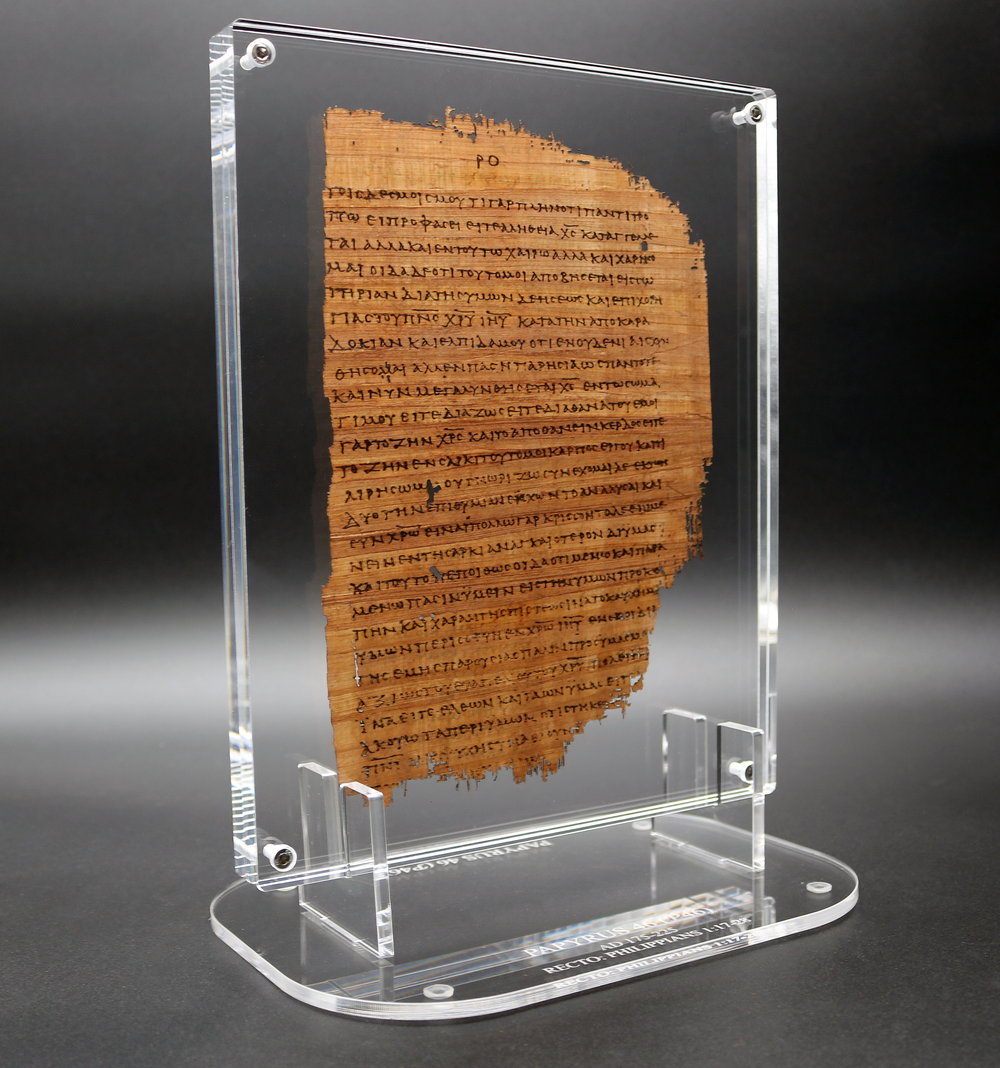 ΡΟ
ΤΟΙϹ ΔΕϹΜΟΙϹ ΜΟΥ ΤΙ ΓΑΡ ΠΛΗΝ ΟΤΙ ΠΑΝΤΙ ΤΡΟ
ΠΩ ΕΙ ΠΡΟΦΑϹΕΙ ΕΙΤΕ ΑΛΗΘΕΙΑ Χ̅Ϲ̅ ΚΑΤΑΓΓΕΛΕ
ΤΑΙ ΑΛΛΑ ΚΑΙ ΕΝ ΤΟΥΤΩ ΧΑΙΡΩ ΑΛΛΑ ΚΑΙ ΧΑΡΗϹΟ
ΜΑΙ ΟΙΔΑ ΔΕ ΟΤΙ ΤΟΥΤΟ ΜΟΙ ΑΠΟΒΗϹΕΤΑΙ ΕΙϹ ϹΩ
ΤΗΡΙΑΝ ΔΙΑ ΤΗϹ ΥΜΩΝ ΔΕΗϹΕΩϹ ΚΑΙ ΕΠΙΧΟΡΗ
ΓΙΑϹ ΤΟΥ Π̅Ν̅Ϲ̅ Χ̅Ρ̅Υ̅ Ι̅Η̅Υ̅ ΚΑΤΑ ΤΗΝ ΑΠΟΚΑΡΑ
ΔΟΚΙΑΝ ΚΑΙ ΕΛΠΙΔΑ ΜΟΥ ΟΤΙ ΕΝ ΟΥΔΕΝΙ ΑΙϹΧΥΝ
ΘΗϹΟΜΑΙ ΑΛΛ ΕΝ ΠΑϹΗ ΠΑΡΗϹΙΑ ΩϹ ΠΑΝΤΟΤΕ
ΚΑΙ ΝΥΝ ΜΕΓΑΛΥΝΘΗϹΕΤΑΙ Χ̅Ϲ̅ ΕΝ ΤΩ ϹΩΜΑ
ΤΙ ΜΟΥ ΕΙΤΕ ΔΙΑ ΖΩϹ ΕΙΤΕ ΔΙΑ ΘΑΝΑΤΟΥ ΕΜΟΙ
ΓΑΡ ΤΟ ΖΗΝ Χ̅Ρ̅Ϲ̅ ΚΑΙ ΤΟ ΑΠΟΘΑΝΕΙΝ ΚΕΡΔΟϹ ΕΙΤΕ
ΤΟ ΖΗΝ ΕΝ ϹΑΡΚΙ ΤΟΥΤΟ ΜΟΙ ΚΑΡΠΟϹ ΕΡΓΟΥ ΚΑΙ ΤΙ
ΑΙΡΗϹΩΜΑΙ ΟΥ ΓΝΩΡΙΖΩ ϹΥΝΕΧΟΜΑΙ ΔΕ ΕΚ ΤΩΝ
ΔΥΟ ΤΗΝ ΕΠΙΘΥΜΙΑΝ ΕΧΩΝ ΤΟ ΑΝΑΛΥϹΑΙ ΚΑΙ
ϹΥΝ Χ̅Ρ̅Ω̅ ΕΙΝΑΙ ΠΟΛΛΩ ΓΑΡ ΚΡΙϹϹΟΝ ΤΟ ΔΕ ΕΠΙΜΕ
ΝΕΙΝ ΕΝ ΤΗ ϹΑΡΚΙ ΑΝΑΓΚΑΙΟΤΕΡΟΝ ΔΙ ΥΜΑϹ
ΚΑΙ ΤΟΥΤΟ ΠΕΠΟΙΘΩϹ ΟΙΔΑ ΟΤΙ ΜΕΝΩ ΚΑΙ ΠΑΡΑ
ΜΕΝΩ ΠΑϹΙΝ ΥΜΕΙΝ ΕΙϹ ΤΗΝ ΥΜΩΝ ΠΡΟΚΟ
ΠΗΝ ΚΑΙ ΧΑΡΑΝ ΤΗϹ ΠΙϹΤΕΩϹ ΙΝΑ ΤΟ ΚΑΥΧΗΜΑ
ΥΜΩΝ ΠΕΡΙϹϹΕΥΗ ΕΝ Χ̅Ρ̅Ω̅ Ι̅Η̅Υ̅ ΕΝ ΕΜΟΙ ΔΙΑ
ΤΗϹ ΕΜΗϹ ΠΑΡΟΥϹΙΑϹ ΠΑΛΙΝ ΠΡΟϹ ΥΜΑϹ
ΑΞΙΩϹ ΤΟΥ ΕΥΑΓΓΕΛΙΟΥ ΤΟΥ Χ̅Ρ̅Υ̅
ΙΝΑ ΕΙΤΕ ΕΛΘΩΝ ΚΑΙ ΙΔΩΝ ΥΜΑϹ ΕΙΤΕ
ΑΚΟΥΩ ΤΑ ΠΕΡΙ ΥΜΩΝ ΟΤΙ ϹΤΗΚΕ
Π̅Ν̅Ι̅
PAPYRUS 46 (P46)
AD 175-225
RECTO: PHILIPPIANS 1:17-28